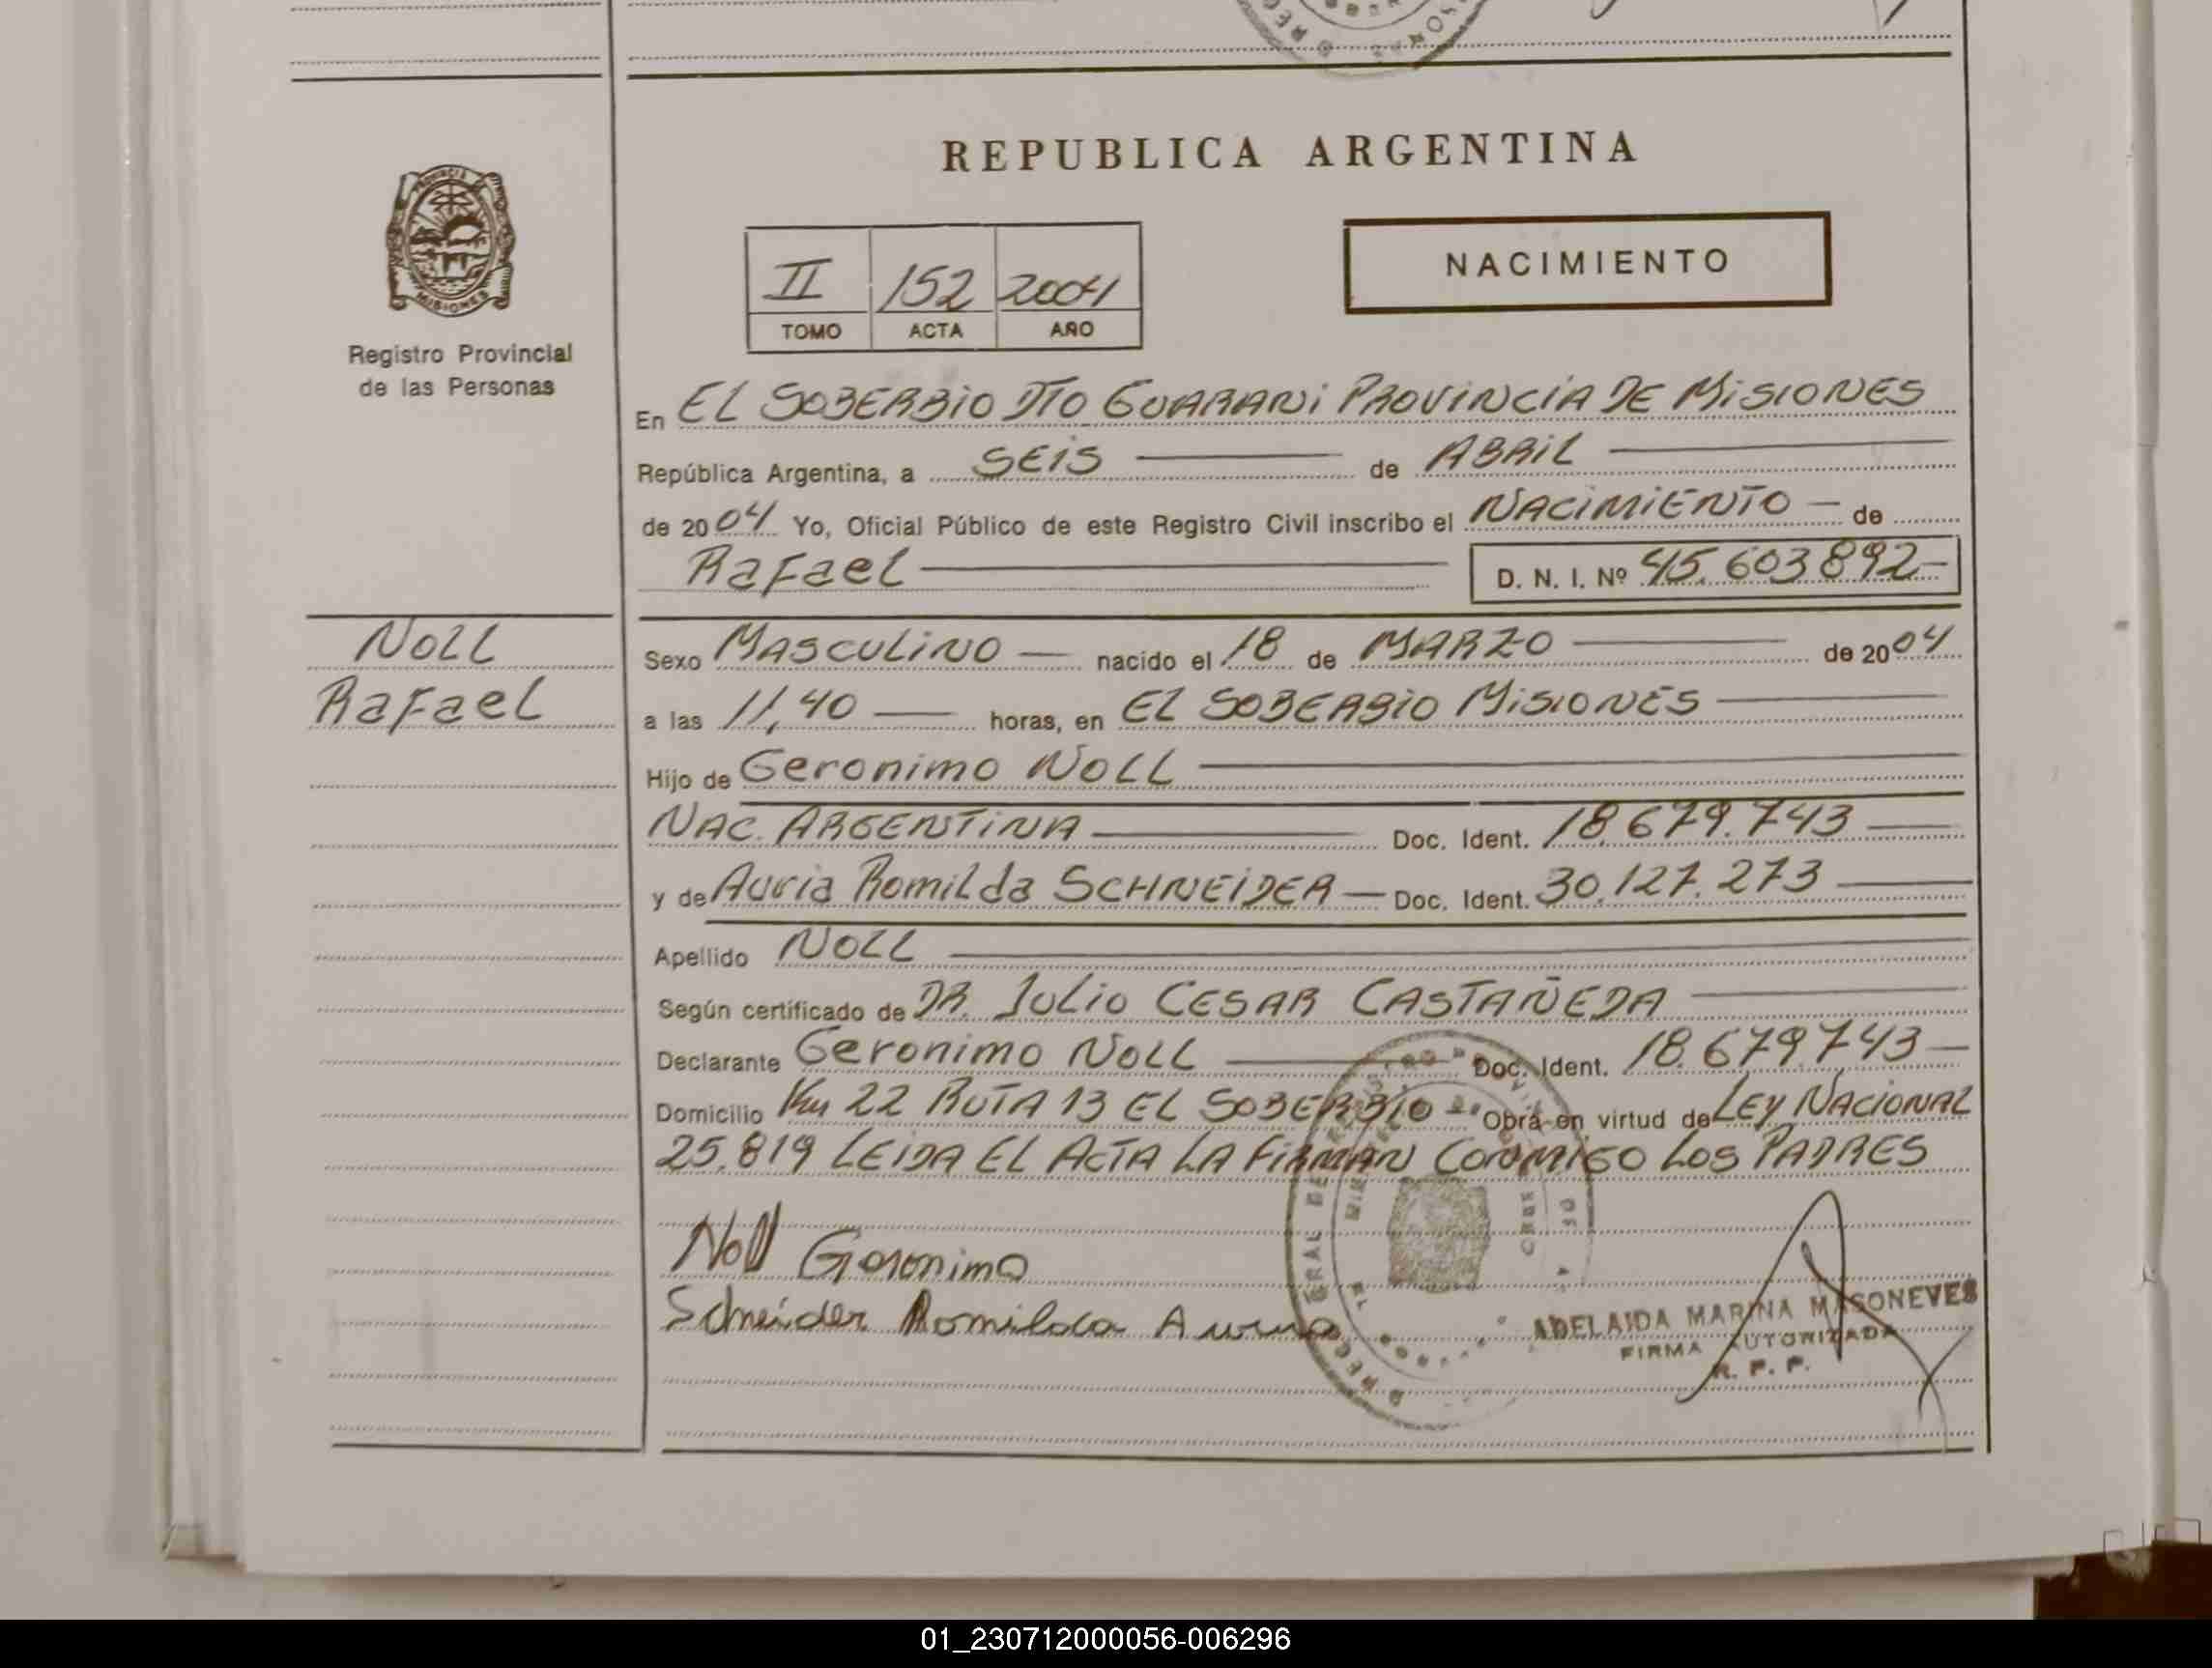 REPUBLICA ARGENTINA
NACIMIENTO
II 152 2004
TOMO ACTA AÑO
MISIONES
Registro Provincial
de las Personas
En EL SOBERBIO DTO GUARANI PROVINCIA DE MISIONES
República Argentina, a SEIS de ABRIL
de 2004 Yo, Oficial Público de este Registro Civil inscribo el NACIMIENTO de
Rafael D. N. I. Nº 45.603892
NOLL
Rafael
Sexo MASCULINO nacido el 18 de MARZO de 2004
a las 11,40 horas, en EL SOBERBIO MISIONES
Hijo de Geronimo NOLL
NAC. ARGENTINA Doc. Ident. 18.679.743
y de Auria Romilda SCHNEIDER Doc. Ident. 30.127.273
Apellido NOLL
Según certificado de DR. JULIO CESAR CASTAÑEDA
Declarante Geronimo NOLL Doc. Ident. 18.679.743
Domicilio Km 22 RUTA 13 EL SOBERBIO Obra en virtud de LEY NACIONAL
25.819 LEIDA EL ACTA LA FIRMAN CONMIGO LOS PADRES
Noll Geronimo
Schneider Romilda Auria
ADELAIDA MARINA MASONEVES
FIRMA AUTORIZADA
R. P. P.
01_230712000056-006296